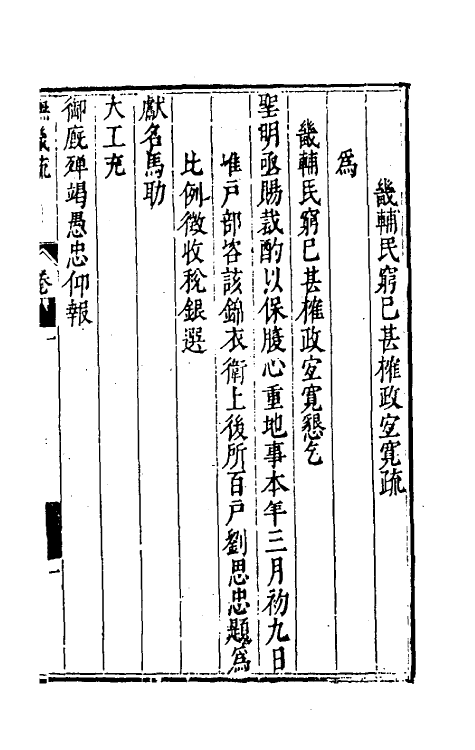 畿輔民窮已甚榷政宜寬疏
為
畿輔民窮已甚榷政宜寬懇乞
聖明亟賜裁酌以保腹心重地事本年三月初九日
准戶部咨該錦衣衛上後所百戶劉思忠題為
比例徵收稅銀選
獻名馬助
大工充
御廄殫竭愚忠仰報
畿疏
卷
一